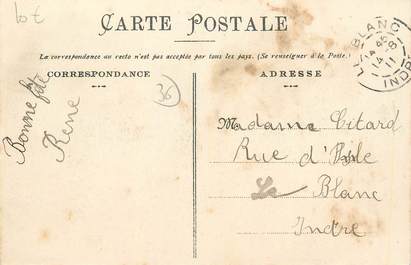 lot
CARTE POSTALE
La correspondance au recto n'est pas acceptée par tous les pays. (Se renseigner à la Poste.)
CORRESPONDANCE
ADRESSE
Bonne fête
René
36
LE BLANC
14 -8
11
INDRE
Madame Citard
Rue d'
Le Blanc
Indre